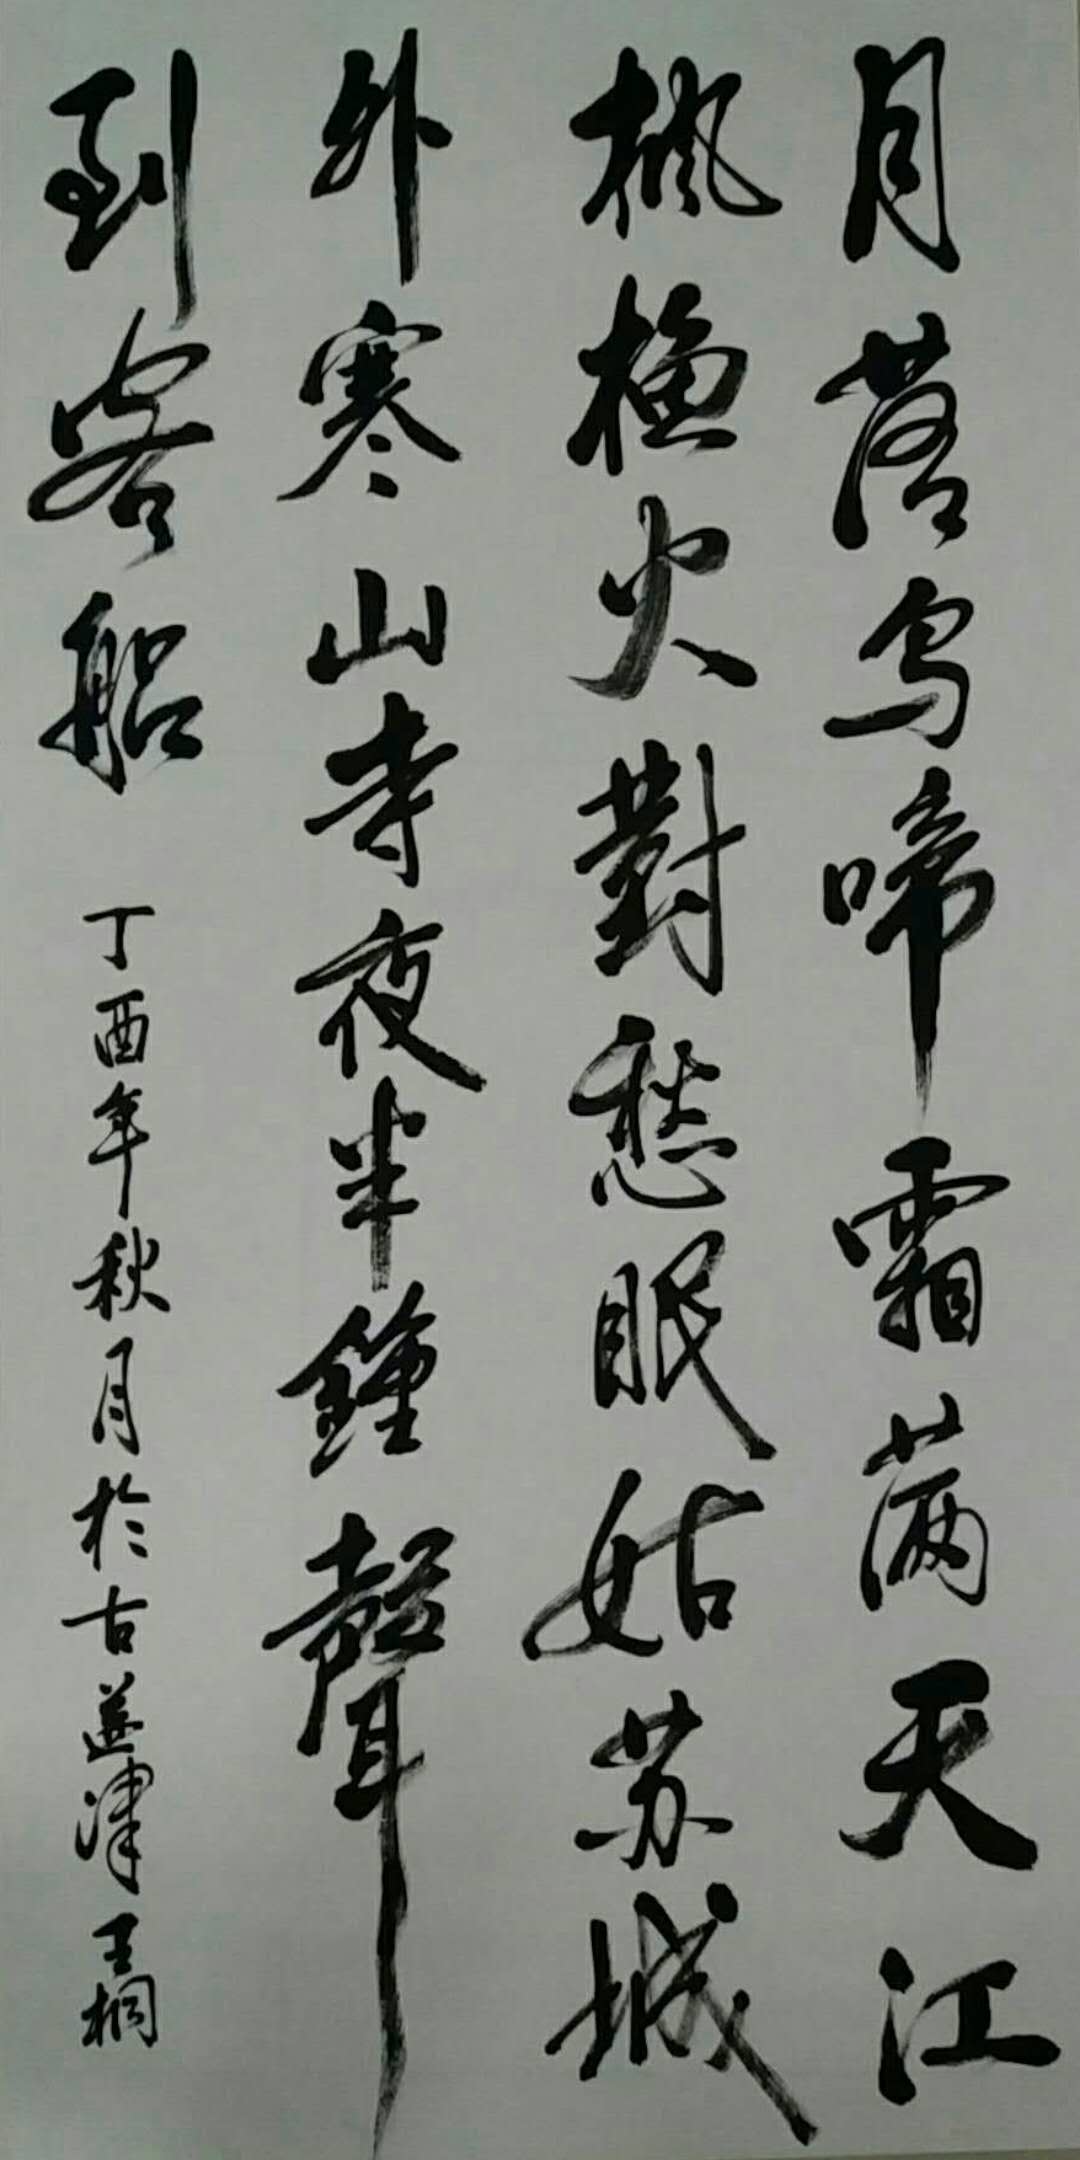 月落乌啼霜满天江
枫渔火對愁眠姑苏城
外寒山寺夜半鐘聲
到客船
丁酉年秋月於古津王桐